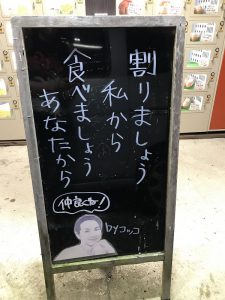 割りましょう
私から
食べましょう
あなたから
仲良くね！
byコッコ